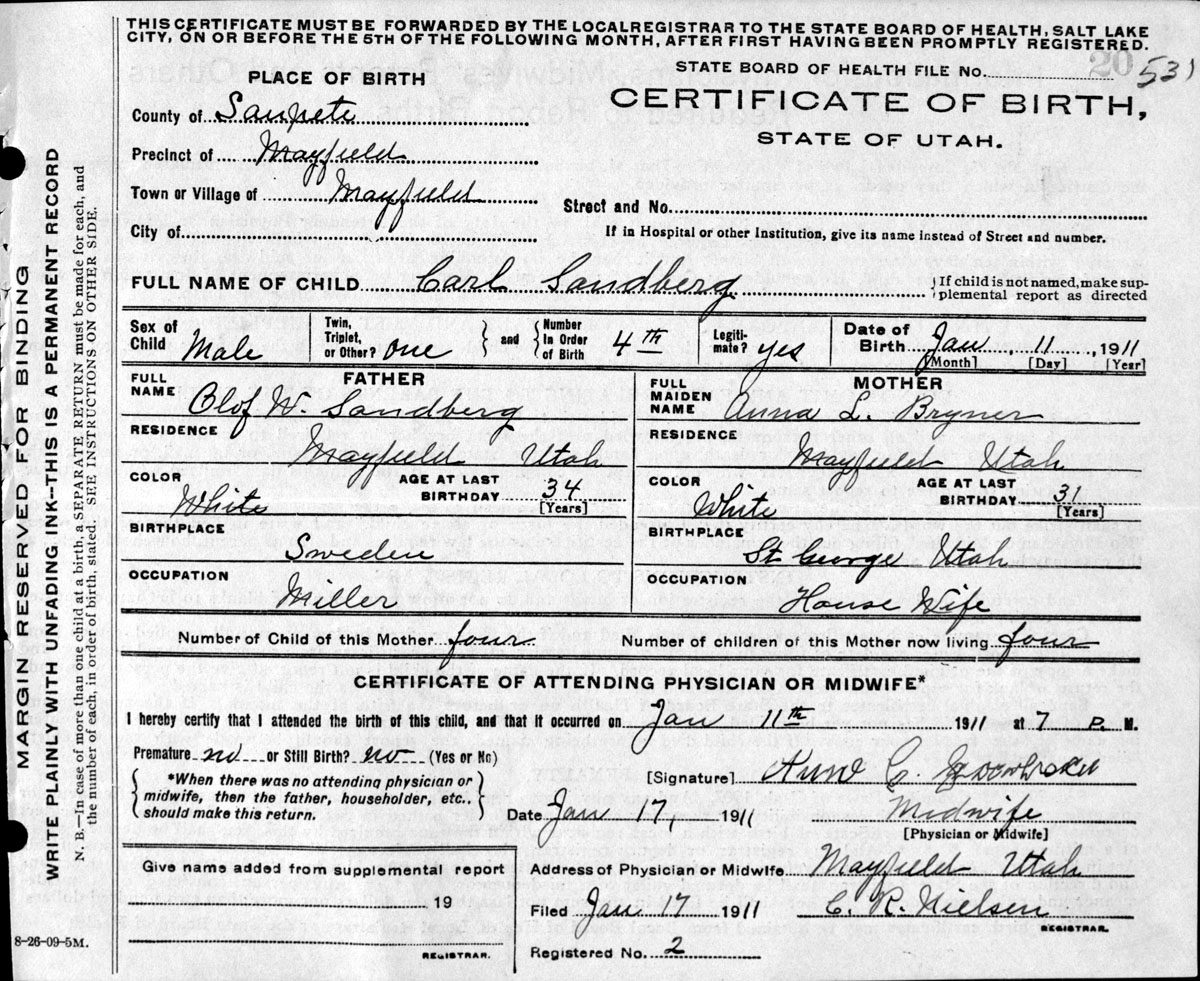 THIS CERTIFICATE MUST BE FORWARDED BY THE LOCAL REGISTRAR TO THE STATE BOARD OF HEALTH, SALT LAKE
CITY, ON OR BEFORE THE 5TH OF THE FOLLOWING MONTH, AFTER FIRST HAVING BEEN PROMPTLY REGISTERED.
STATE BOARD OF HEALTH FILE No. 20 531
PLACE OF BIRTH
CERTIFICATE OF BIRTH,
STATE OF UTAH.
County of Sanpete
Precinct of Mayfield
Town or Village of Mayfield
Street and No.
City of
If in Hospital or other Institution, give its name instead of Street and number.
FULL NAME OF CHILD Carl Sandberg
If child is not named, make sup-
plemental report as directed
Sex of Child Male
Twin, Triplet, or Other? One and Number In Order of Birth 4th
Legiti-mate? yes
Date of Birth Jan, 11, 1911
[Month] [Day] [Year]
FATHER
FULL NAME Olof W. Sandberg
RESIDENCE
Mayfield Utah
COLOR White
AGE AT LAST BIRTHDAY 34
[Years]
BIRTHPLACE
Sweden
OCCUPATION
Miller
MOTHER
FULL MAIDEN NAME Anna L. Bryner
RESIDENCE
Mayfield Utah
COLOR White
AGE AT LAST BIRTHDAY 31
[Years]
BIRTHPLACE
St George Utah
OCCUPATION
House Wife
Number of Child of this Mother four
Number of children of this Mother now living four
CERTIFICATE OF ATTENDING PHYSICIAN OR MIDWIFE*
I hereby certify that I attended the birth of this child, and that it occurred on Jan 11th 1911 at 7 P. M.
Premature no or Still Birth? no (Yes or No)
*When there was no attending physician or
midwife, then the father, householder, etc.,
should make this return.
[Signature] C.
Date Jan 17 1911 Midwife
[Physician or Midwife]
Give name added from supplemental report
19
REGISTRAR.
Address of Physician or Midwife Mayfield Utah
Filed Jan 17 1911 C. R. Nielsen
REGISTRAR.
Registered No. 2
MARGIN RESERVED FOR BINDING
WRITE PLAINLY WITH UNFADING INK--THIS IS A PERMANENT RECORD
N. B.—In case of more than one child at a birth, a SEPARATE RETURN must be made for each, and
the number of each, in order of birth, stated. SEE INSTRUCTIONS ON OTHER SIDE.
8-26-09-5M.